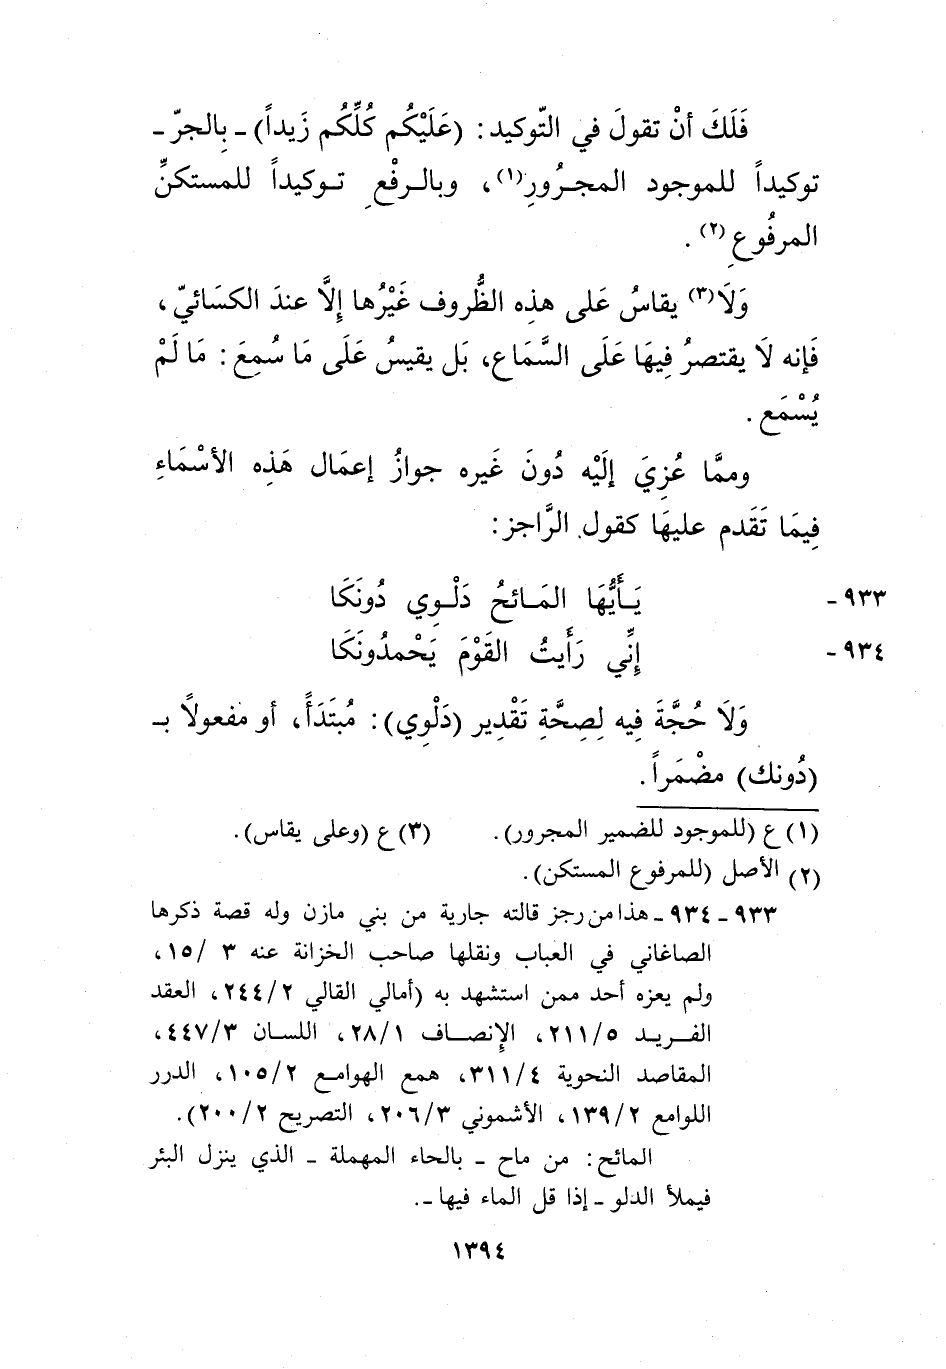 فَلَكَ أنْ تقولَ في التّوكيد: (عَلَيْكُم كُلِّكُم زَيداً) ـ بِالجرّ ـ
توكيداً للموجود المجرُورِ(١)، وبالرفْعِ توكيداً للمستكنِّ
المرفُوعِ(٢).
وَلَا(٣) يقاسُ عَلى هذِه الظُّروف غَيْرُها إِلَّا عندَ الكسَائيّ،
فَإنه لَا يقتصرُ فِيهَا عَلَى السَّمَاعِ، بَل يقيسُ عَلَى مَا سُمِعَ: مَا لَمْ
يُسْمَع.
وممَّا عُزِيَ إلَيْه دُونَ غَيره جوازُ إعمَال هَذِه الأسْمَاءِ
فِيمَا تَقَدم عليهَا كقول الرَّاجز:
٩٣٣ ـ يَـأَيُّهَا المَـائحُ دَلْـوِي دُونَكَا
٩٣٤ ـ إِنِّي رَأَيتُ القَوْمَ يَحْمدُونَكَا
وَلَا حُجَّةَ فِيه لِصِحَّةِ تَقْدِير (دَلْوِي): مُبتَدَأً، أو مفعولاً بـ
(دُونك) مضْمَراً.
(١) ع (للموجود للضمير المجرور). (٣) ع (وعلى يقاس).
(٢) الأصل (للمرفوع المستكن).
٩٣٣ ـ ٩٣٤ ـ هذا من رجز قالته جارية من بني مازن وله قصة ذكرها
الصاغاني في العباب ونقلها صاحب الخزانة عنه ٣ /١٥،
ولم يعزه أحد ممن استشهد به (أمالي القالي ٢/ ٢٤٤، العقد
الفريد ٥/ ٢١١، الإنصاف ١/ ٢٨، اللسان ٣/ ٤٤٧،
المقاصد النحوية ٤/ ٣١١، همع الهوامع ٢/ ١٠٥، الدرر
اللوامع ٢/ ١٣٩، الأشموني ٣/ ٢٠٦، التصريح ٢/ ٢٠٠).
المائح: من ماح ـ بالحاء المهملة ـ الذي ينزل البئر
فيملأ الدلو ـ إذا قل الماء فيها ـ.
١٣٩٤